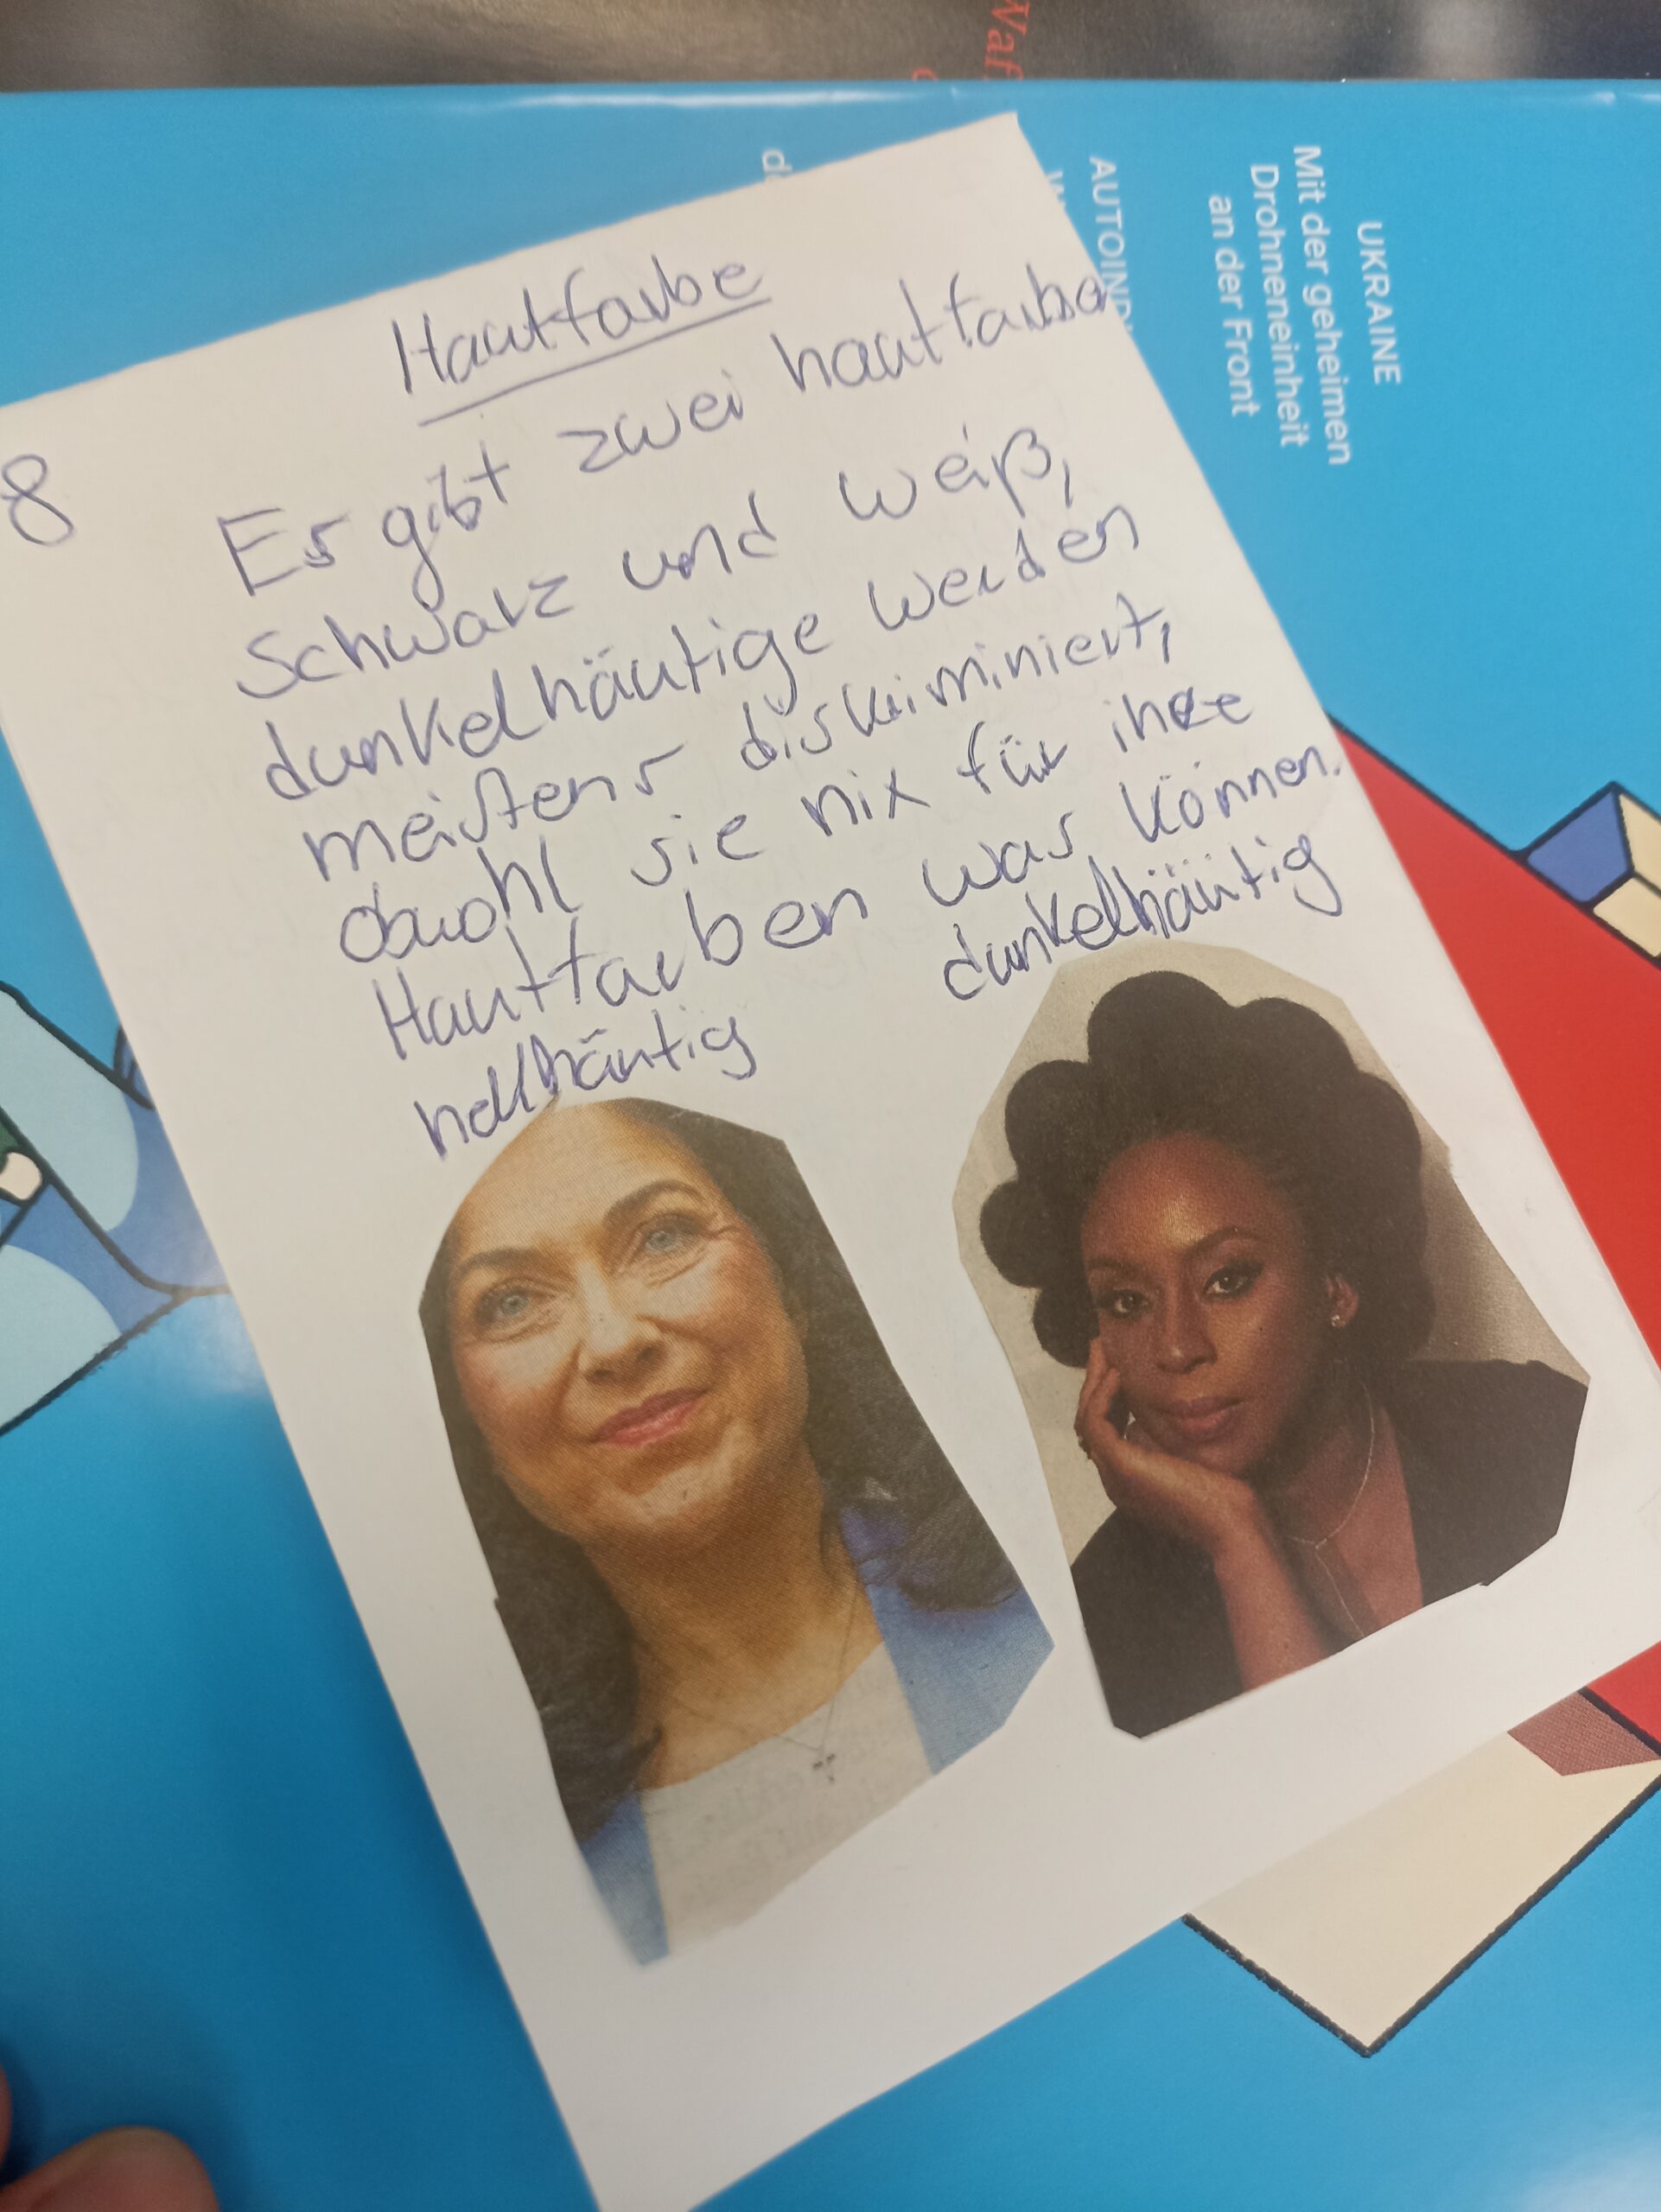 Hautfarbe
8
Es gibt zwei hautfarben
Schwarz und weiß,
dunkelhäutige werden
meistens diskriminiert,
obwohl sie nix für ihre
Hautfarben was können.
hellhäutig
dunkelhäutig
UKRAINE
Mit der geheimen
Drohneneinheit
an der Front